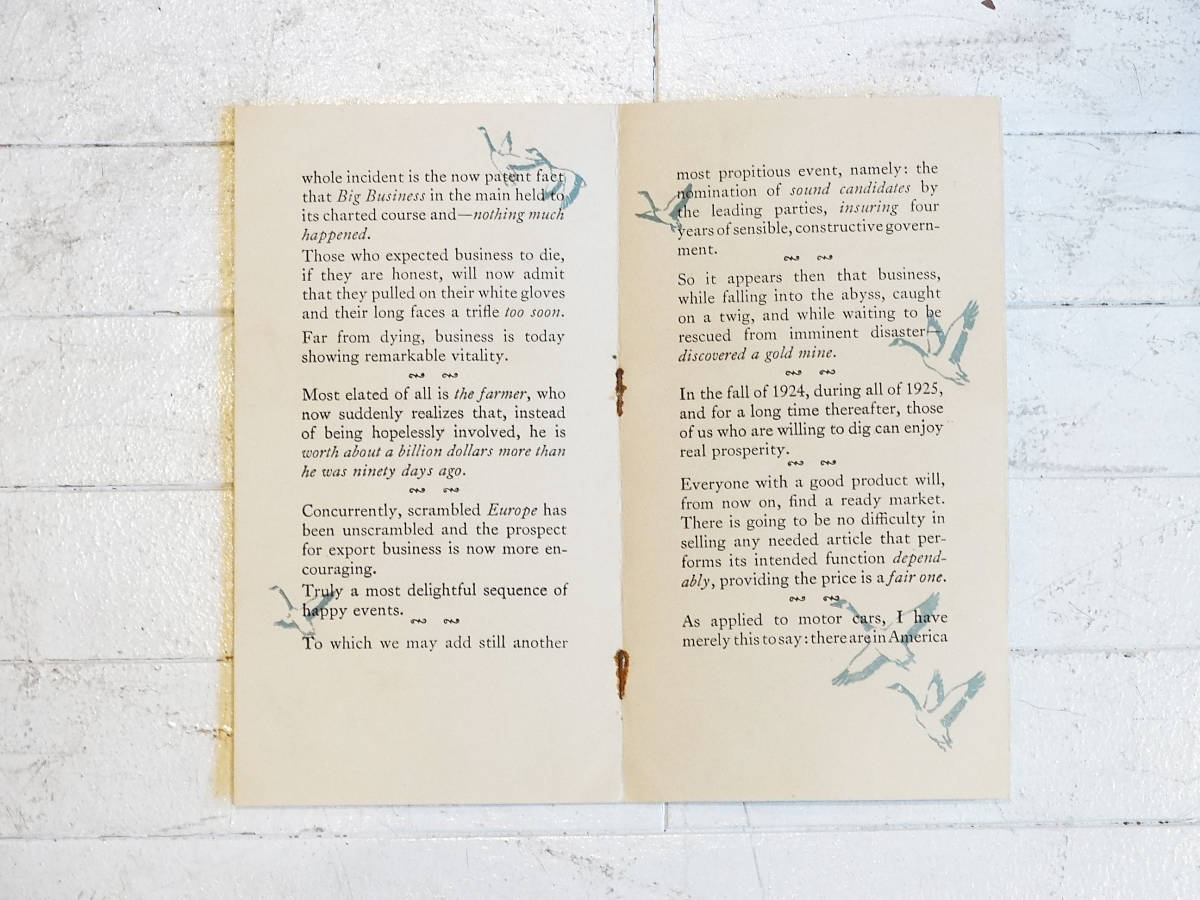 whole incident is the now patent fact
that Big Business in the main held to
its charted course and—nothing much
happened.
Those who expected business to die,
if they are honest, will now admit
that they pulled on their white gloves
and their long faces a trifle too soon.
Far from dying, business is today
showing remarkable vitality.
Most elated of all is the farmer, who
now suddenly realizes that, instead
of being hopelessly involved, he is
worth about a billion dollars more than
he was ninety days ago.
Concurrently, scrambled Europe has
been unscrambled and the prospect
for export business is now more en-
couraging.
Truly a most delightful sequence of
happy events.
To which we may add still another
most propitious event, namely: the
nomination of sound candidates by
the leading parties, insuring four
years of sensible, constructive govern-
ment.
So it appears then that business,
while falling into the abyss, caught
on a twig, and while waiting to be
rescued from imminent disaster—
discovered a gold mine.
In the fall of 1924, during all of 1925,
and for a long time thereafter, those
of us who are willing to dig can enjoy
real prosperity.
Everyone with a good product will,
from now on, find a ready market.
There is going to be no difficulty in
selling any needed article that per-
forms its intended function depend-
ably, providing the price is a fair one.
As applied to motor cars, I have
merely this to say: there are in America